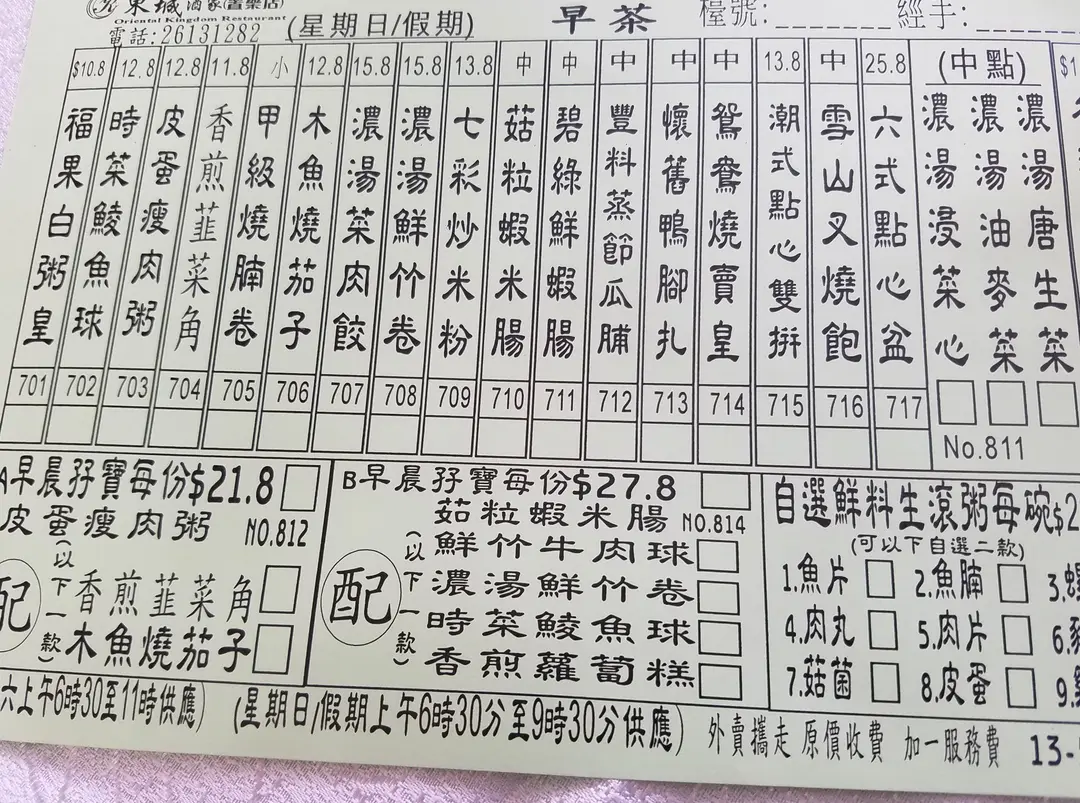 東城酒家(置樂店)
Oriental Kingdom Restaurant
電話:26131282
(星期日/假期)
早茶
檯號:
經手:
$10.8 福果白粥皇 701
12.8 時菜鯪魚球 702
12.8 皮蛋瘦肉粥 703
11.8 香煎韮菜角 704
小 甲級燒腩卷 705
12.8 木魚燒茄子 706
15.8 濃湯菜肉餃 707
15.8 濃湯鮮竹卷 708
13.8 七彩炒米粉 709
中 菇粒蝦米腸 710
中 碧綠鮮蝦腸 711
中 豐料蒸節瓜脯 712
中 懷舊鴨腳扎 713
中 鴛鴦燒賣皇 714
13.8 潮式點心雙拼 715
中 雪山叉燒飽 716
25.8 六式點心盆 717
(中點)
濃湯浸菜心
濃湯油麥菜
濃湯唐生菜
No.811
A早晨孖寶每份$21.8
皮蛋瘦肉粥 NO.812
配
(以下一款)
香煎韮菜角
木魚燒茄子
B早晨孖寶每份$27.8
茹粒蝦米腸 NO.814
配
(以下一款)
鮮竹牛肉球
濃湯鮮竹卷
時菜鯪魚球
香煎蘿蔔糕
自選鮮料生滾粥每碗$2
(可以下自選二款)
1.魚片 2.魚腩 3.
4.肉丸 5.肉片 6.
7.菇菌 8.皮蛋 9.
六上午6時30至11時供應) (星期日/假期上午6時30分至9時30分供應) 外賣攜走 原價收費 加一服務費 13-